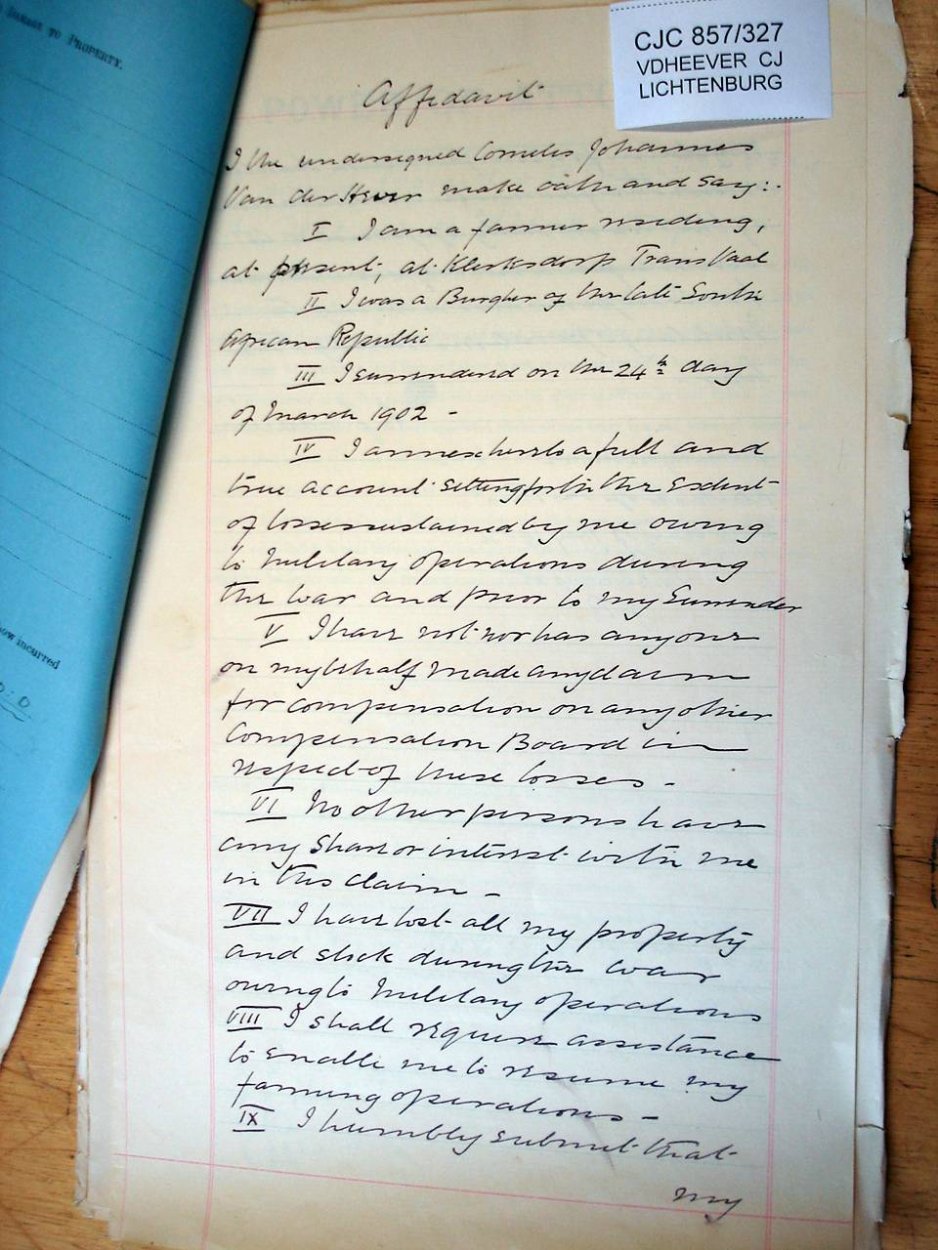 DAMAGE TO PROPERTY.
now incurred
CJC 857/327
VDHEEVER CJ
LICHTENBURG
Affidavit
I the undersigned Cornelis Johannes
Van der Hever make oath and say:.
I I am a farmer residing,
at present, at Klerksdorp Transvaal
II I was a Burgher of the late South
African Republic
III I surrendered on the 24th day
of March 1902 -
IV I annex hereto a full and
true account setting forth the Extent
of losses sustained by me owing
to Military operations during
the War and prior to my Surrender
V I have not nor has anyone
on my behalf made any claim
for compensation on any other
Compensation Board in
respect of these losses -
VI No other persons have
any share or interest with me
in this claim -
VII I have lost all my property
and stock during the war
owing to Military operations
VIII I shall require assistance
to enable me to resume my
farming operations -
IX I humbly submit that
my